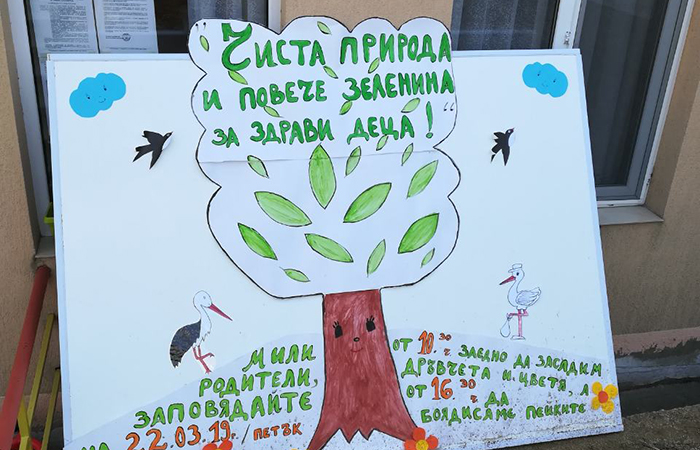 „Чиста природа
и повече зеленина
за здрави деца!“
Мили
родители,
заповядайте
на 22.03.19г./петък
от 10.30 ч. заедно да засадим
дръвчета и цветя, а
от 16.30 ч. да
боядисаме пейките